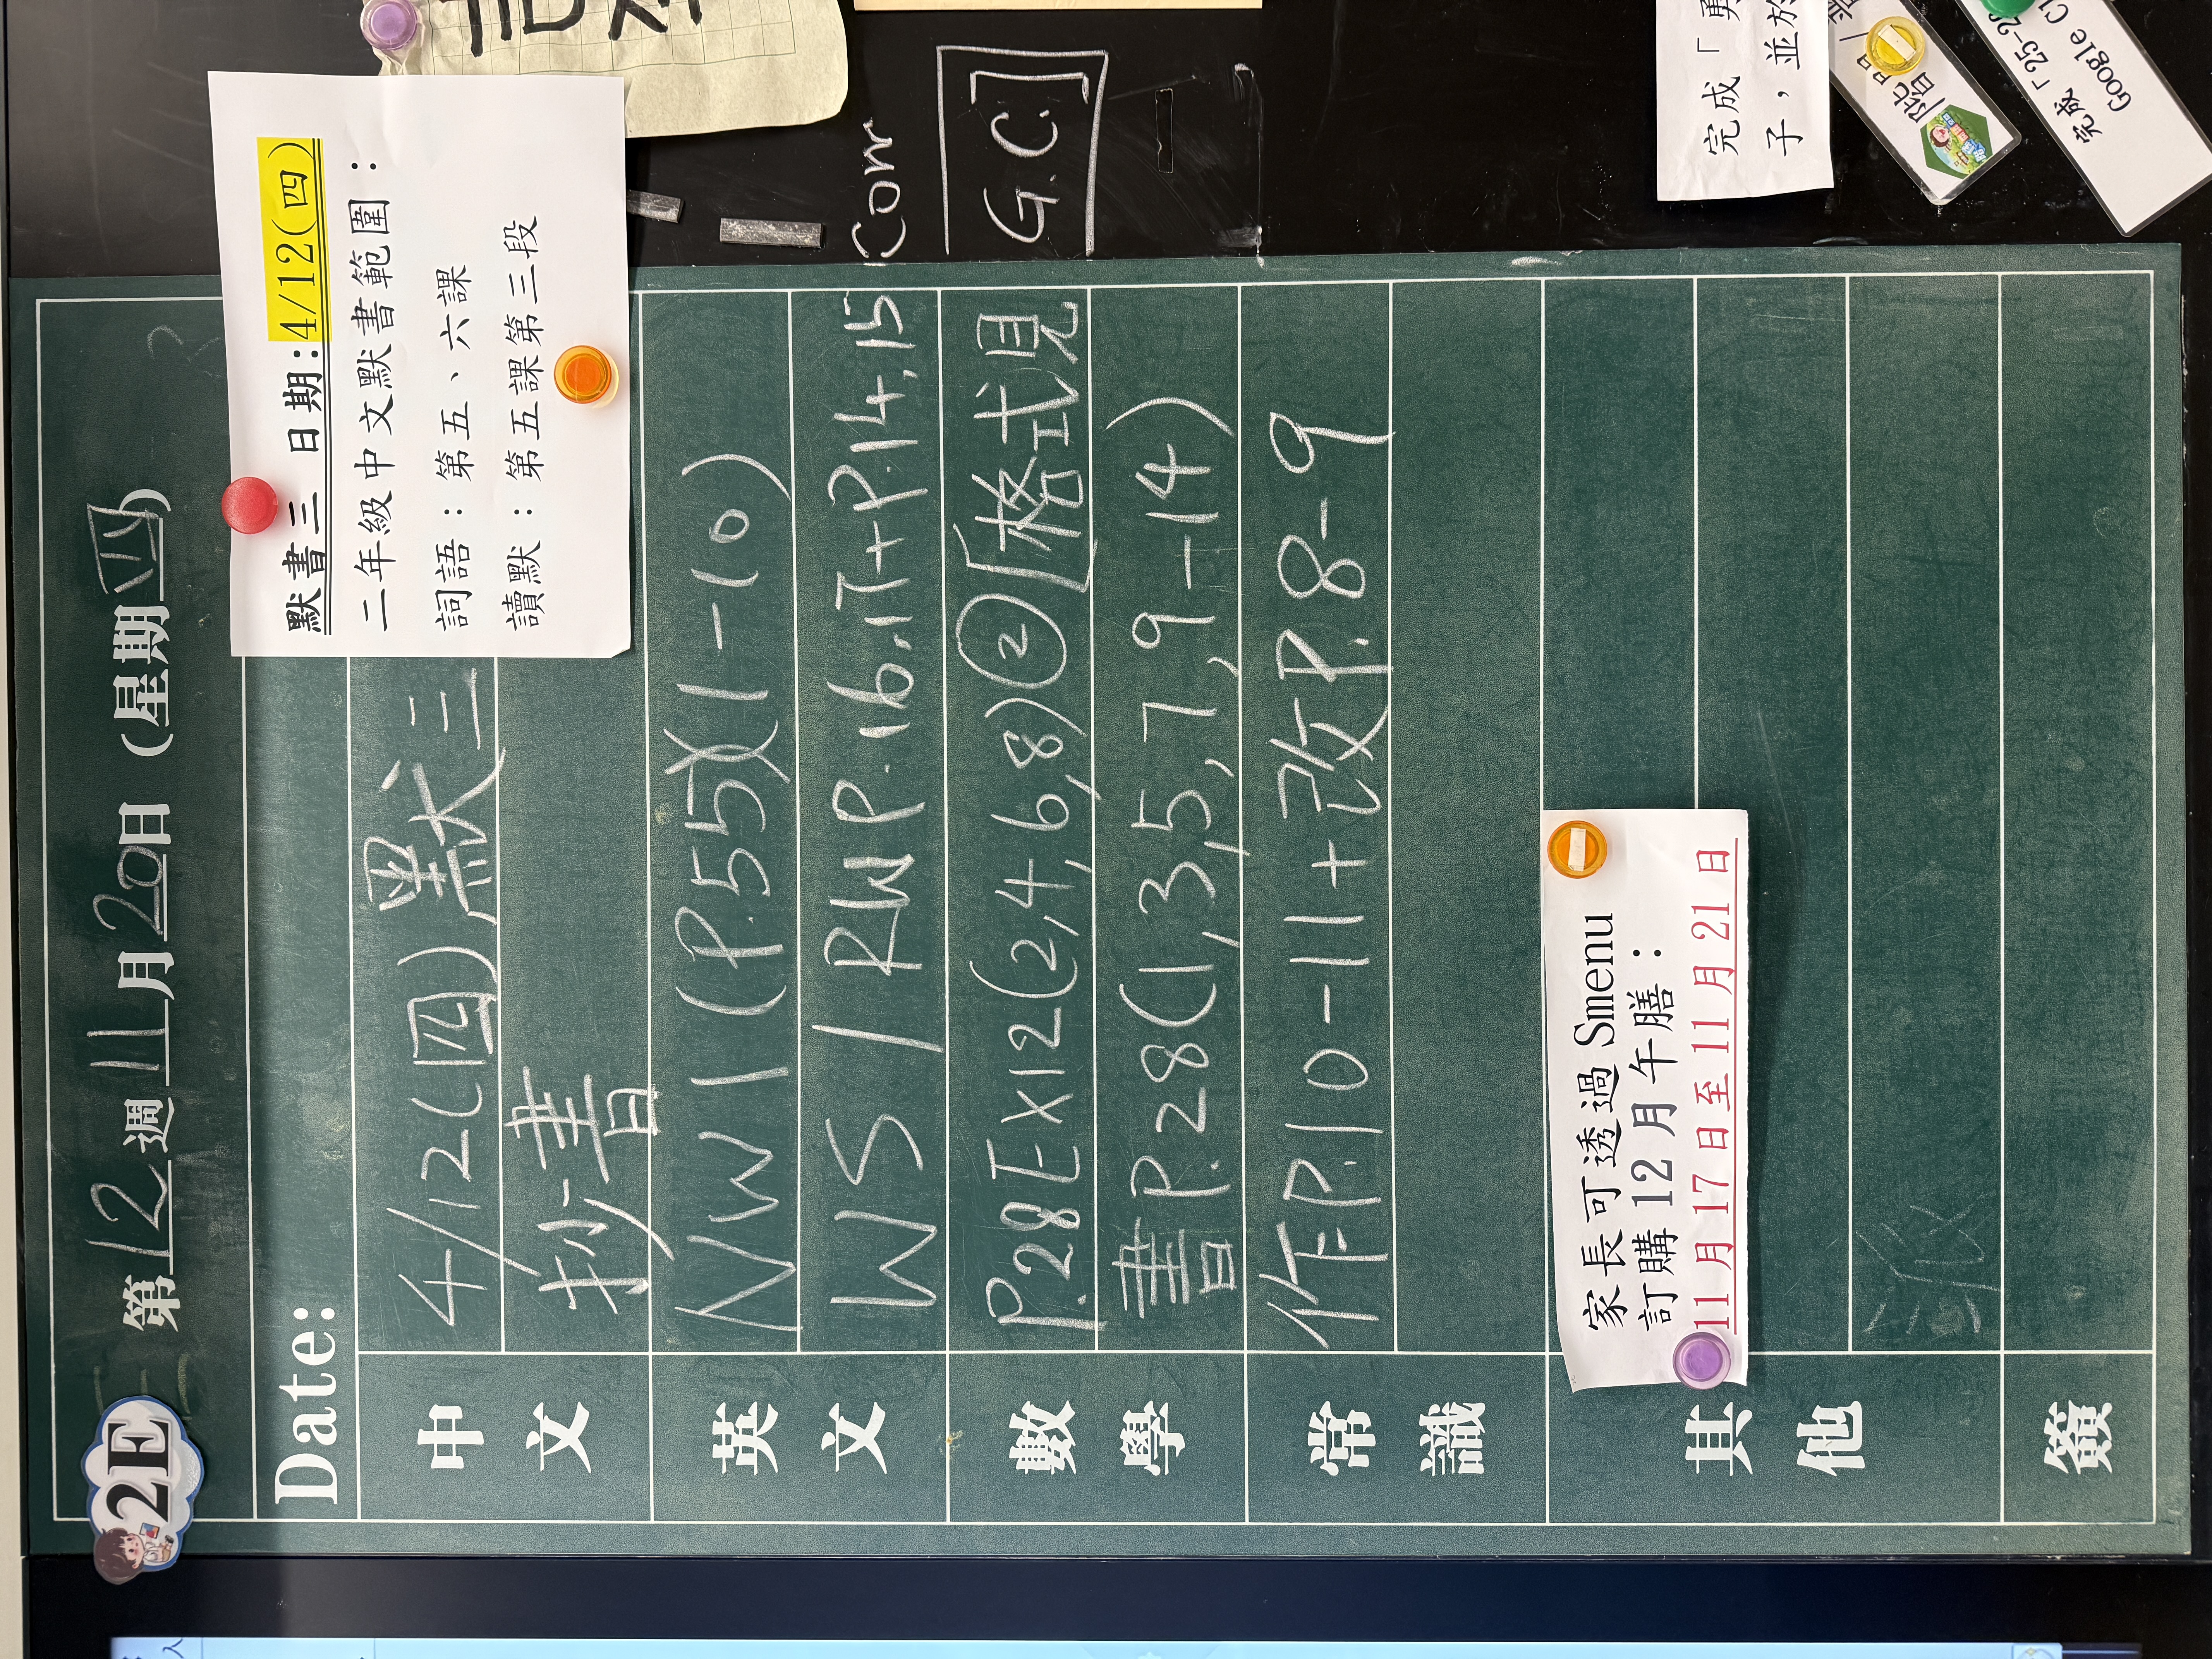 2E
第12週11月20日(星期四)
Date:
默書三 日期:4/12(四)
二年級中文默書範圍:
詞語:第五、六課
讀默:第五課第三段
中文
4/12(四)默三
抄書
英文
NW1(P.55)(1-10)
WS/RWP.16,17+P.14,15 Corr
數學
P.28EX12(2,4,6,8)②[格式見 G.C.]
書P.28(1,3,5,7,9-14)
常識
作P.10-11+改P.8-9
其他
家長可透過 Smenu
訂購 12 月午膳:
11 月 17 日至 11 月 21 日
簽
完成「勇
子,並於
完成「25-2
Google Cl